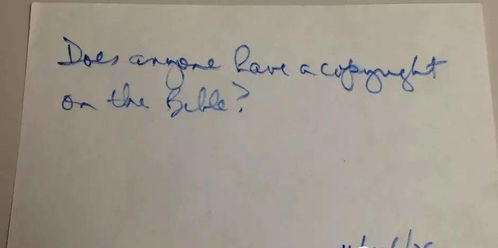 Does anyone have a copyright
on the Bible?